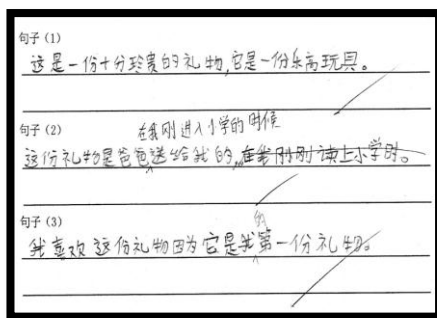 句子 (1)
这是一份十分珍贵的礼物,它是一份乐高玩具。
句子 (2)
在我刚进入小学的时候
这份礼物是爸爸送给我的,在我刚刚读上小学时。
句子 (3)
的
我喜欢这份礼物因为它是我第一份礼物。